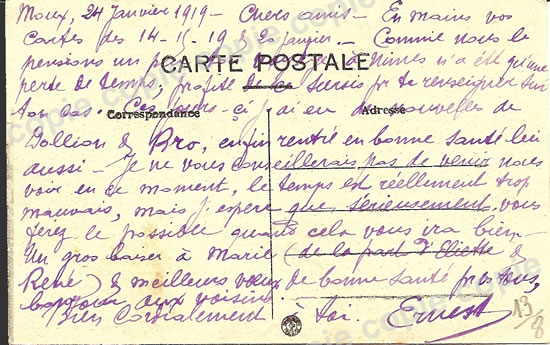 Moux, 24 Janvier 1919 - Chers amis - En mains vos
cartes des 14 - 15 - 19 & 20 janvier - Comme nous le
pensions un p
CARTE POSTALE
Nimes n'a été qu'une
perte de temps, profite
te renseigner sur
ton cas - Ces jours-ci j'ai eu des nouvelles de
Correspondance
Adresse
Jollion & Bro, enfin rentré en bonne santé lui
aussi - Je ne vous conseillerais pas de venir nous
voir en ce moment, le temps est réellement trop
mauvais, mais j'espère que, sérieusement, vous
ferez le possible quand cela vous ira bien -
Un gros baiser à Marie (de la part d'Eliette &
René) & meilleurs vœux de bonne santé pr tous,
bonjour aux voisins
Bien cordialement à toi. Ernest
13/8
copie copie copie